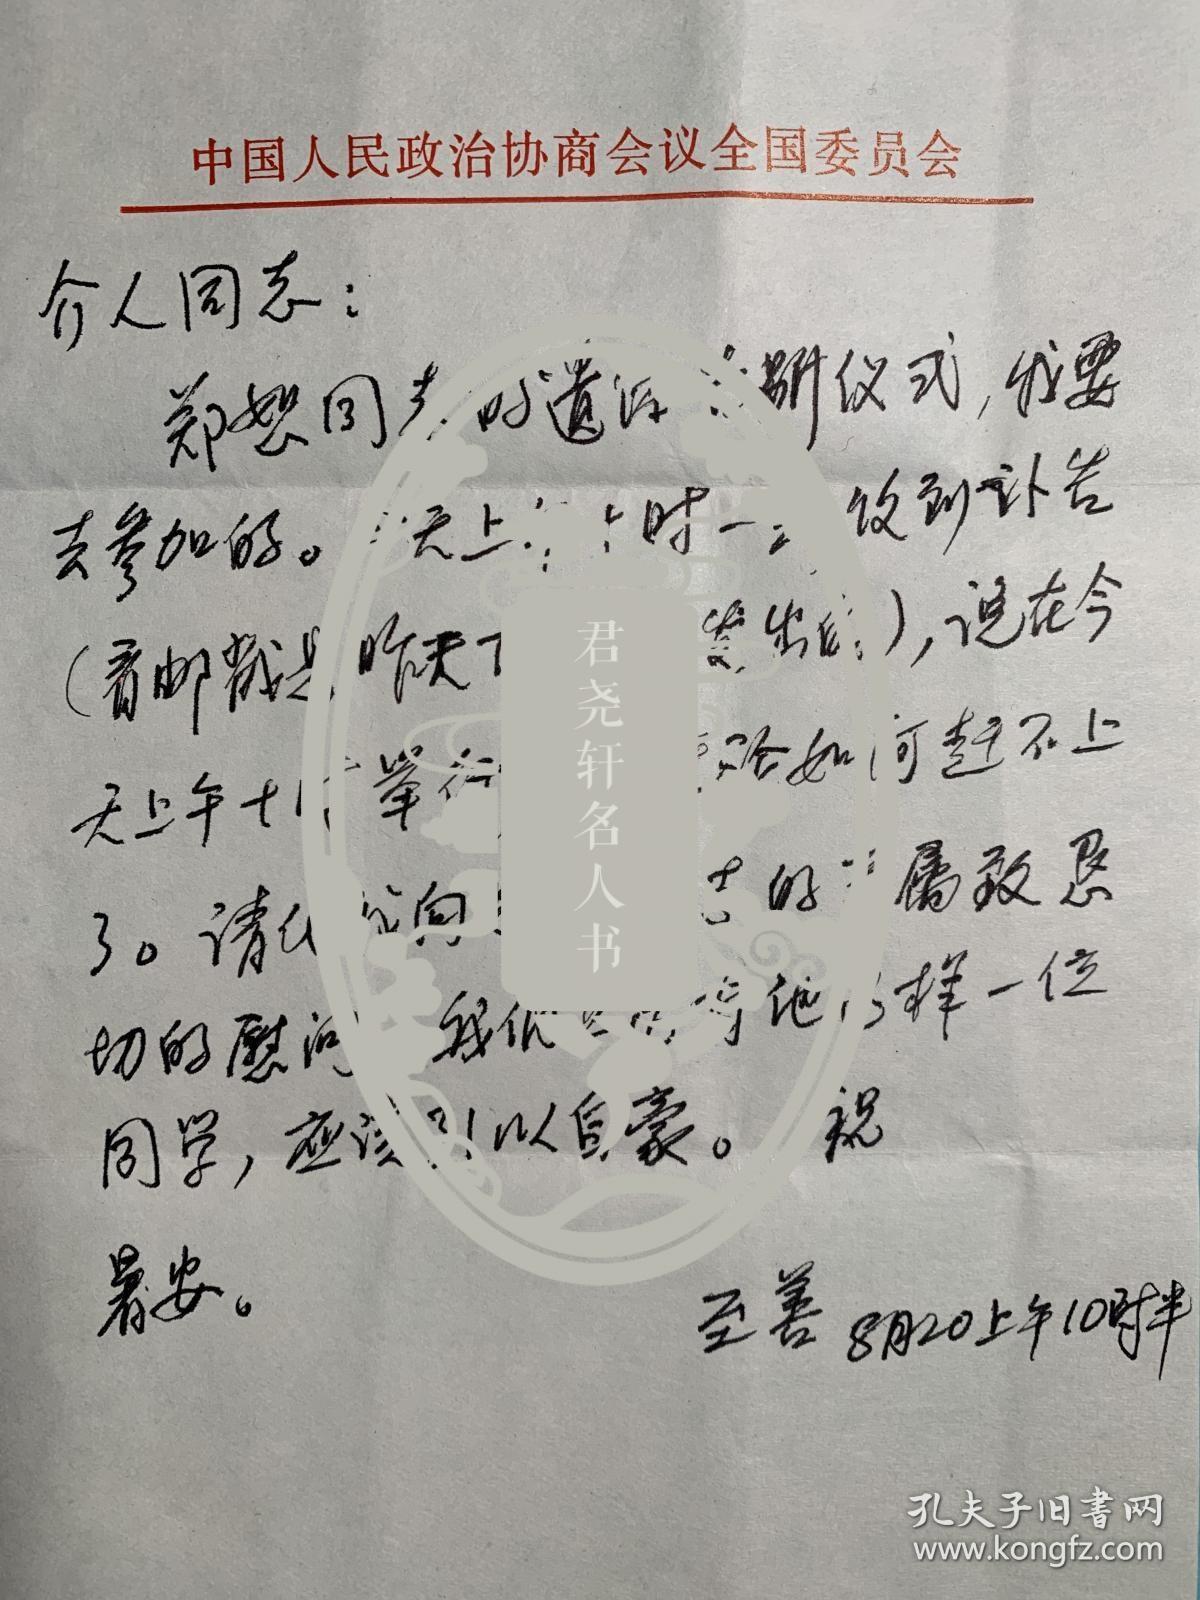 中国人民政治协商会议全国委员会
介人同志：
郑恕同志的遗体告别仪式，我要
去参加的。今天上午十时一刻收到讣告
（看邮戳是昨天下发出的），说在今
天上午十时举行，无论如何赶不上
了。请代我向的家属致恳
切的慰问。我们他这样一位
同学，应该引以自豪。祝
暑安。
至善 8月20上午10时半
君尧轩名人书
孔夫子旧书网
www.kongfz.com